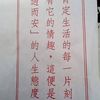 肯定生活的每一片刻
有它的情趣，這便是
遇而安」的人生態度